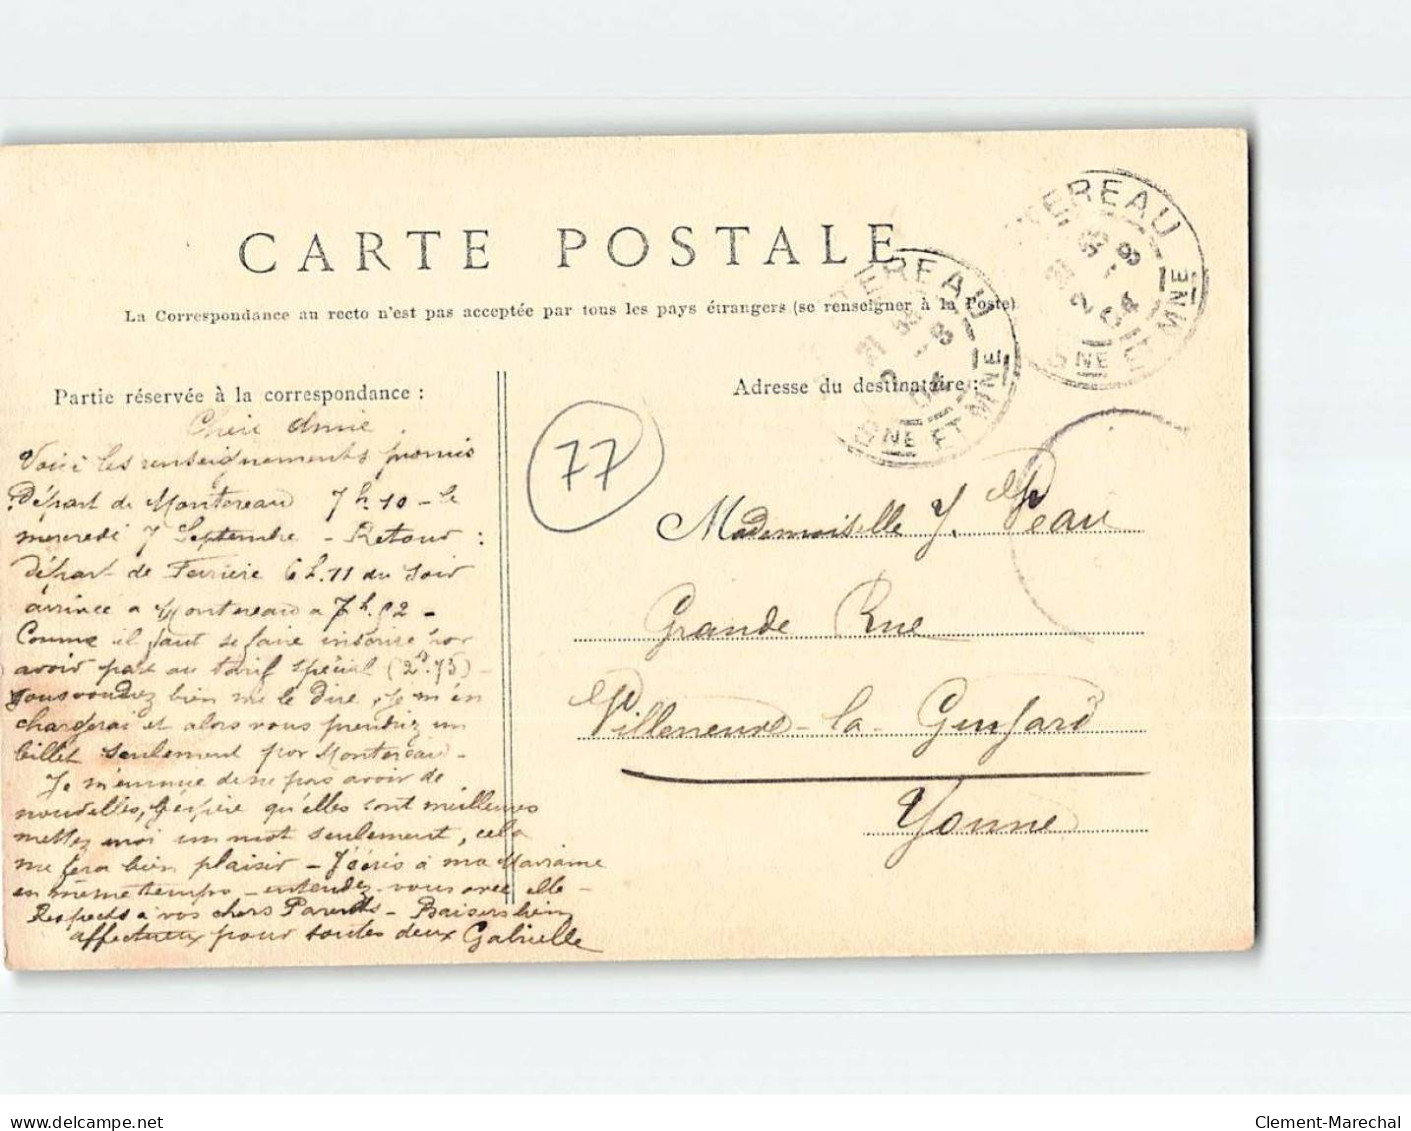 CARTE POSTALE
La Correspondance au recto n'est pas acceptée par tous les pays étrangers (se renseigner à la Poste)
Partie réservée à la correspondance :
Chère Amie
Voici les renseignements promis
Départ de Montereau 7 h. 10 - le
mercredi 7 Septembre - Retour :
départ de Ferrière 6 h. 11 du soir
arrivee a Montereau a 7 h. 92 -
Comme il faut se faire inscrire por
avoir part au tarif spécial (2f.75) -
vous voudrez bien me le dire, je m'en
chargerai et alors vous prendriez un
billet seulement por Montereau -
Je m'ennuie de ne pas avoir de
nouvelles, j'espère qu'elles sont meilleures
mettez moi un mot seulement, cela
me fera bien plaisir - J'écris à ma Marraine
en même temps - entendez-vous avec elle -
Respects à vos chers Parents - Baisers bien
affectueux pour toutes deux Gabrielle
77
Adresse du destinataire :
Mademoiselle J. Peau
Grande Rue
Villeneuve-la-Guyard
Yonne
TEREAU
21
8
2
04
NE ET MNE
TEREAU
21
8
2
04
NE ET MNE
www.delcampe.net
Clement-Marechal